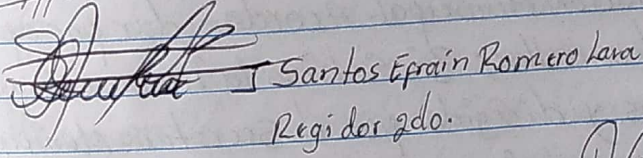 Santos Efraín Romero Lara
Regidor 2do.